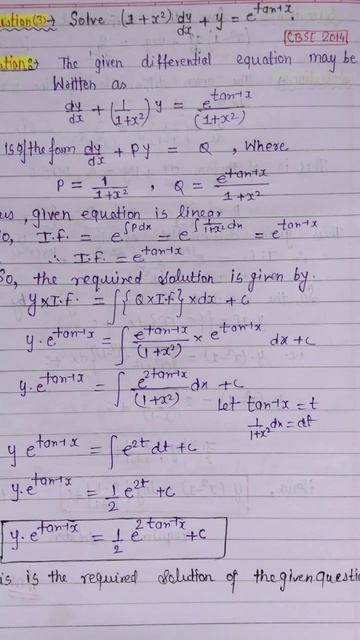 uestion(3)→ Solve (1+x²) dy/dx + y = e^tan⁻¹x.
[CBSE 2014]
ution:→ The given differential equation may be
Written as
dy/dx + (1/1+x²) y = e^tan⁻¹x/(1+x²)
Is of the form dy/dx + Py = Q , Where
P = 1/1+x² , Q = e^tan⁻¹x/1+x²
us, given equation is linear
So, I.f. = e^∫Pdx = e^∫1/1+x² dx = e^tan⁻¹x
∴ I.f. = e^tan⁻¹x
So, the required solution is given by.
y×I.f. = ∫{Q×I.f}×dx + c
y.e^tan⁻¹x = ∫ e^tan⁻¹x/(1+x²) × e^tan⁻¹x dx + c
y.e^tan⁻¹x = ∫ e^2tan⁻¹x/(1+x²) dx + c
Let tan⁻¹x = t
1/1+x² dx = dt
y e^tan⁻¹x = ∫e^2t dt + c
y.e^tan⁻¹x = 1/2 e^2t + c
y.e^tan⁻¹x = 1/2 e^2tan⁻¹x + c
is is the required solution of the given questi